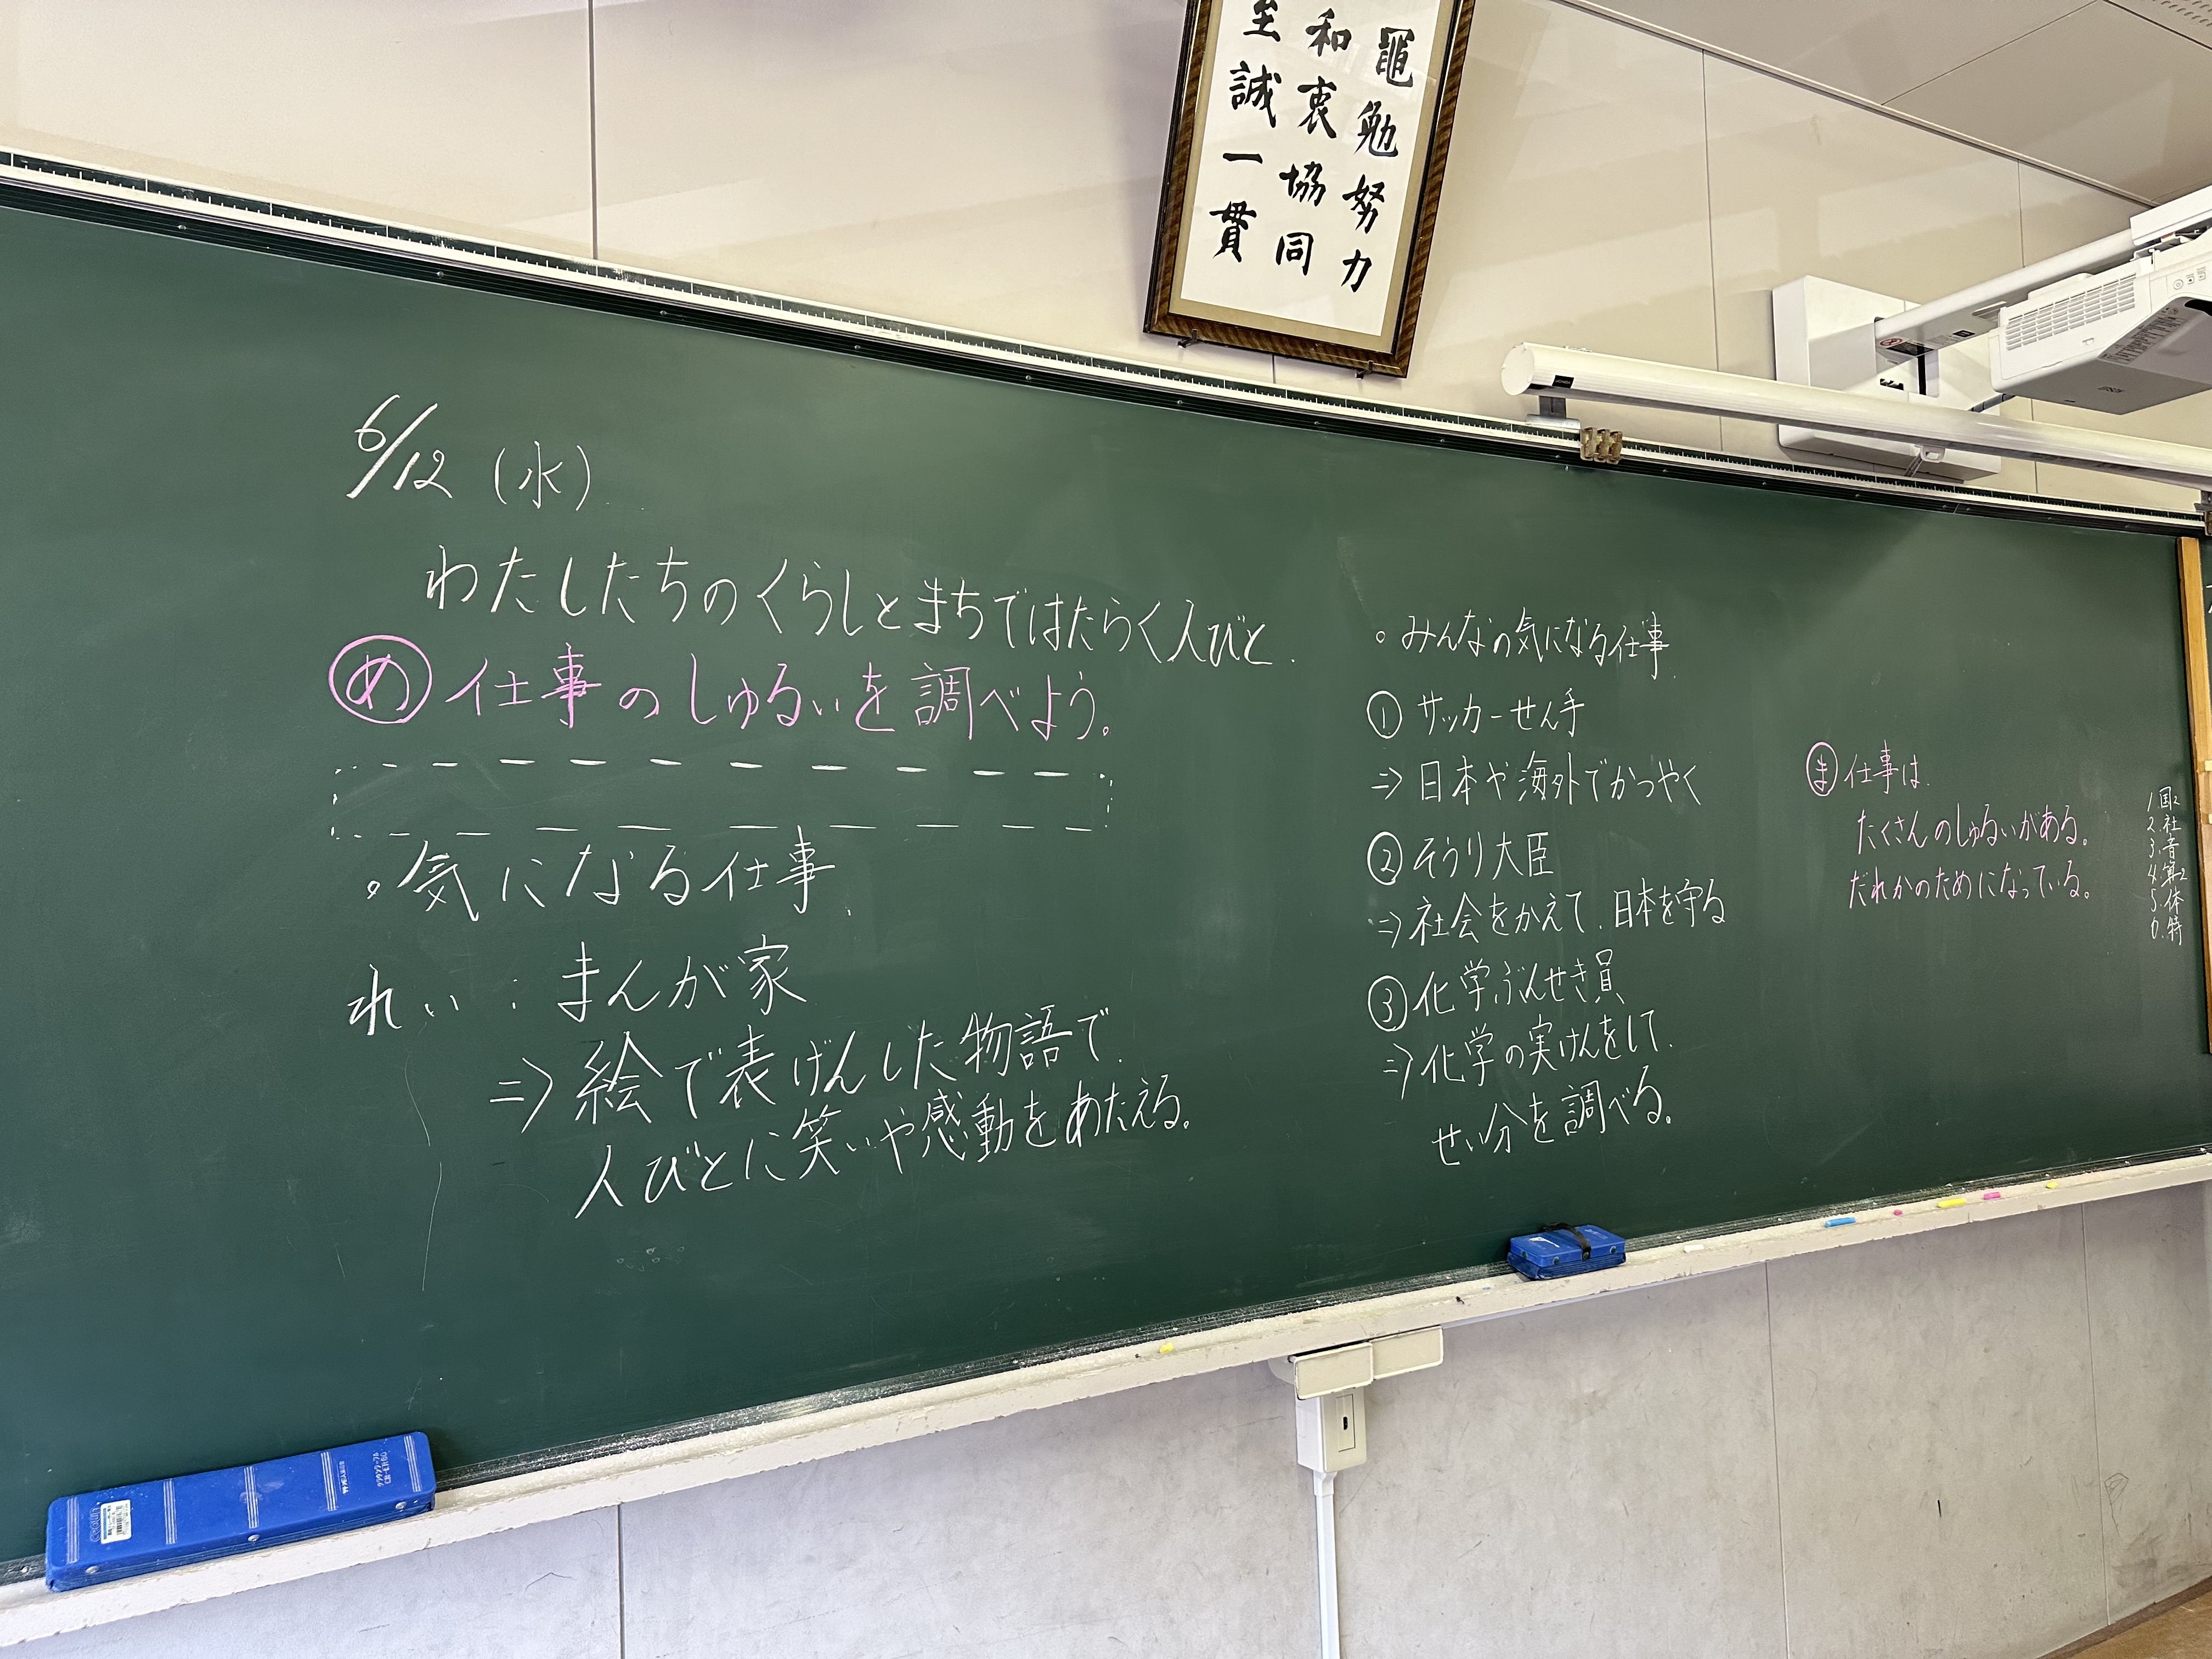 黽勉努力
和衷協同
至誠一貫
6/12 (水)
わたしたちのくらしとまちではたらく人びと.
め 仕事のしゅるいを調べよう。
。気になる仕事.
れい:まんが家
⇒絵で表げんした物語で.
人びとに笑いや感動をあたえる。
。みんなの気になる仕事.
① サッカーせん手
⇒日本や海外でかつやく
② そうり大臣
⇒社会をかえて.日本を守る
③ 化学ぶんせき員
⇒化学の実けんをして.
せい分を調べる。
ま 仕事は.
たくさんのしゅるいがある。
だれかのためになっている。
1.国2
2.社
3.音
4.算2
5.体
6.特
EPSON